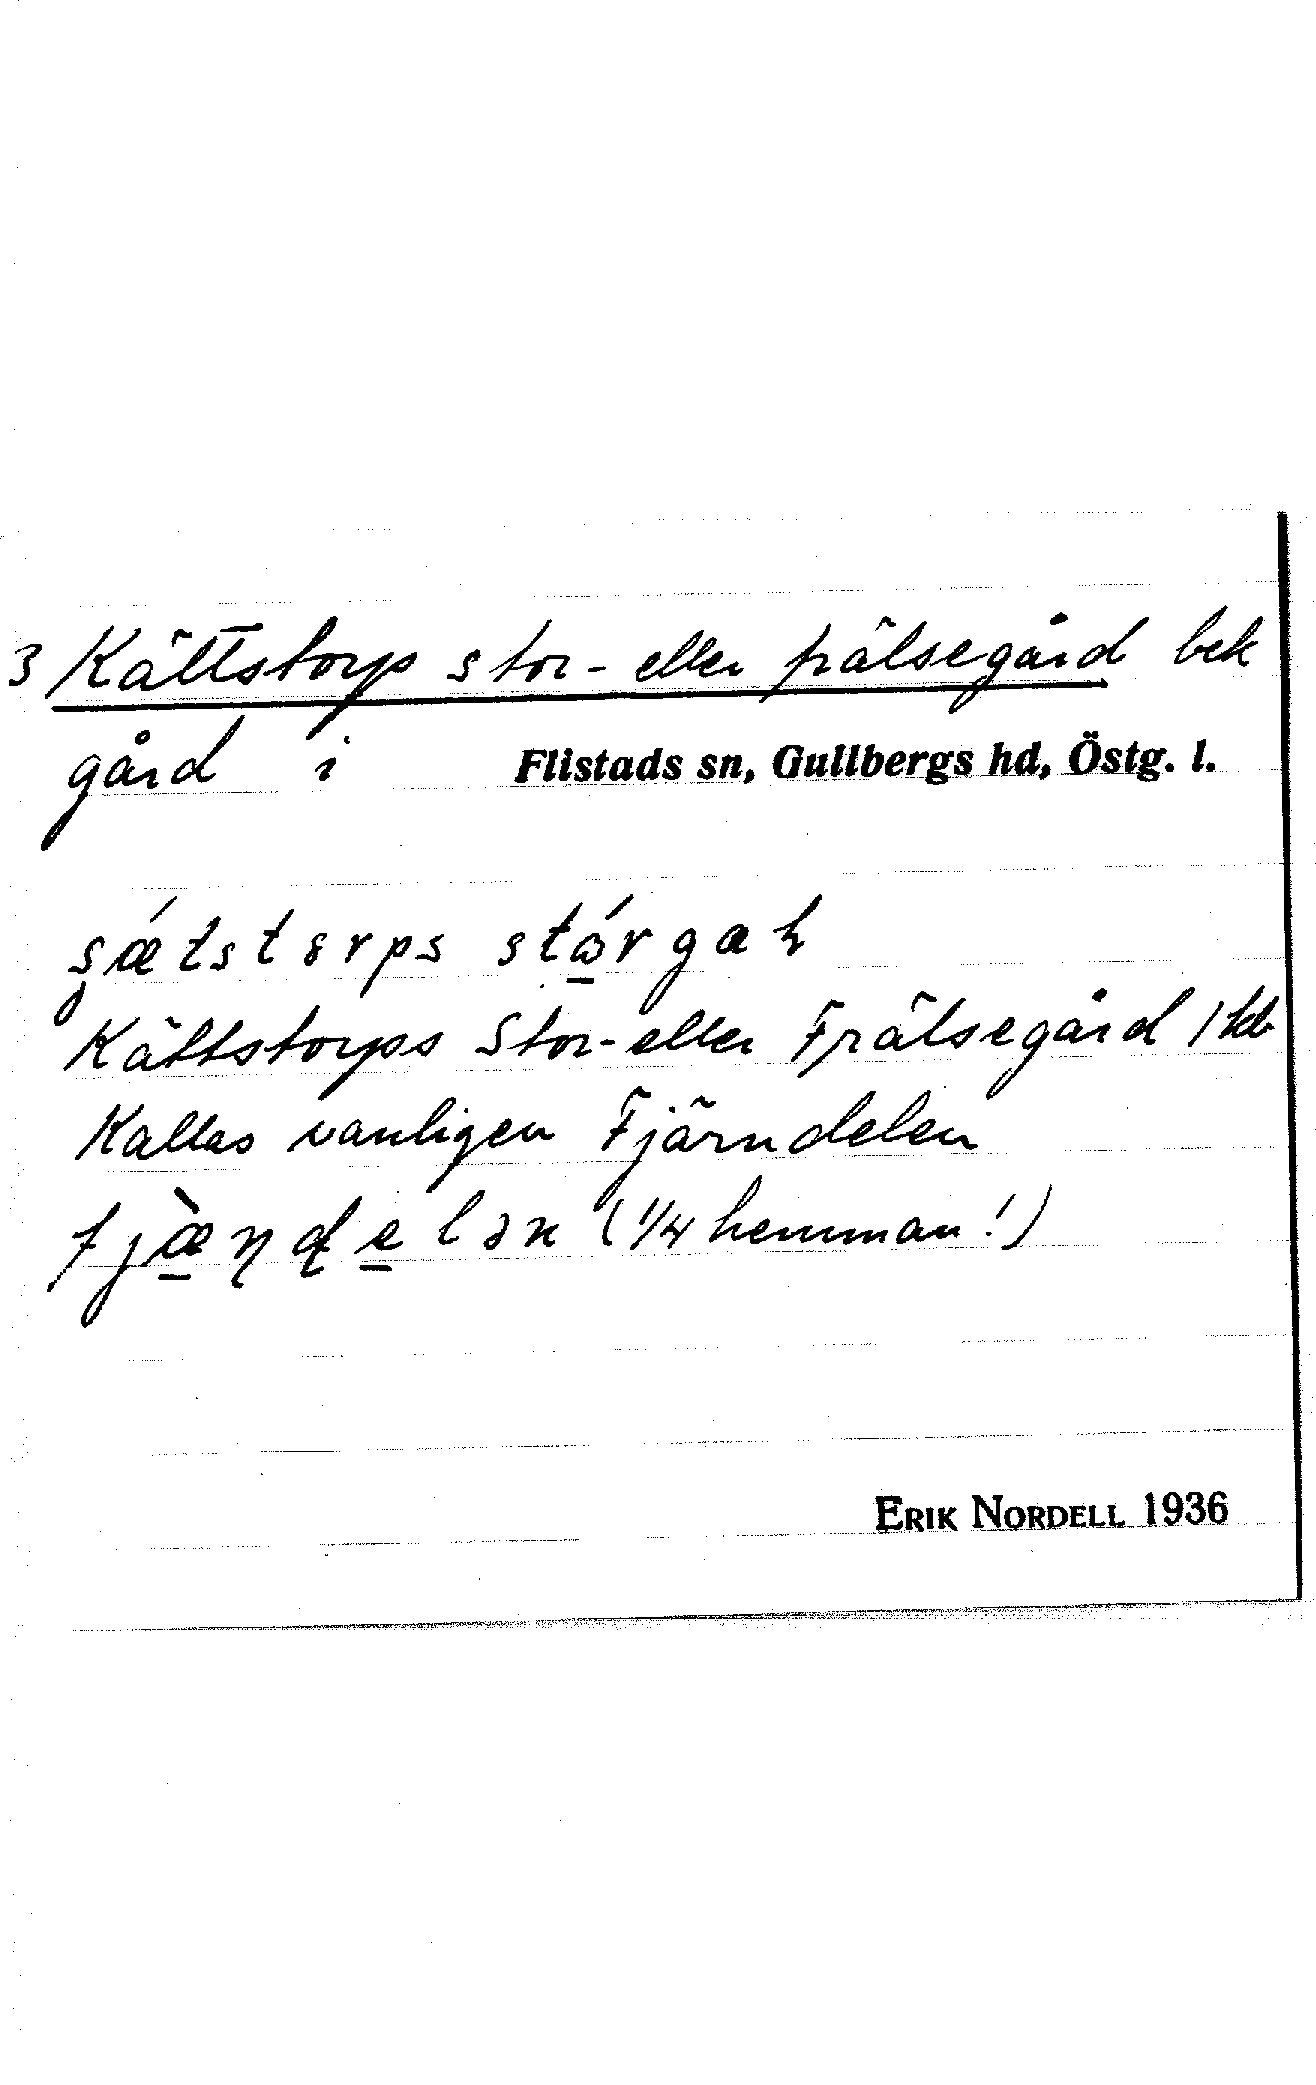 3 Kättstorp stor- eller frälsegård bek
gård i Flistads sn, Gullbergs hd, Östg. l.
Kättstorps Stor- eller Frälsegård
Kallas vanligen Fjärndelen
(1/4 hemman!)
ERIK NORDELL 1936